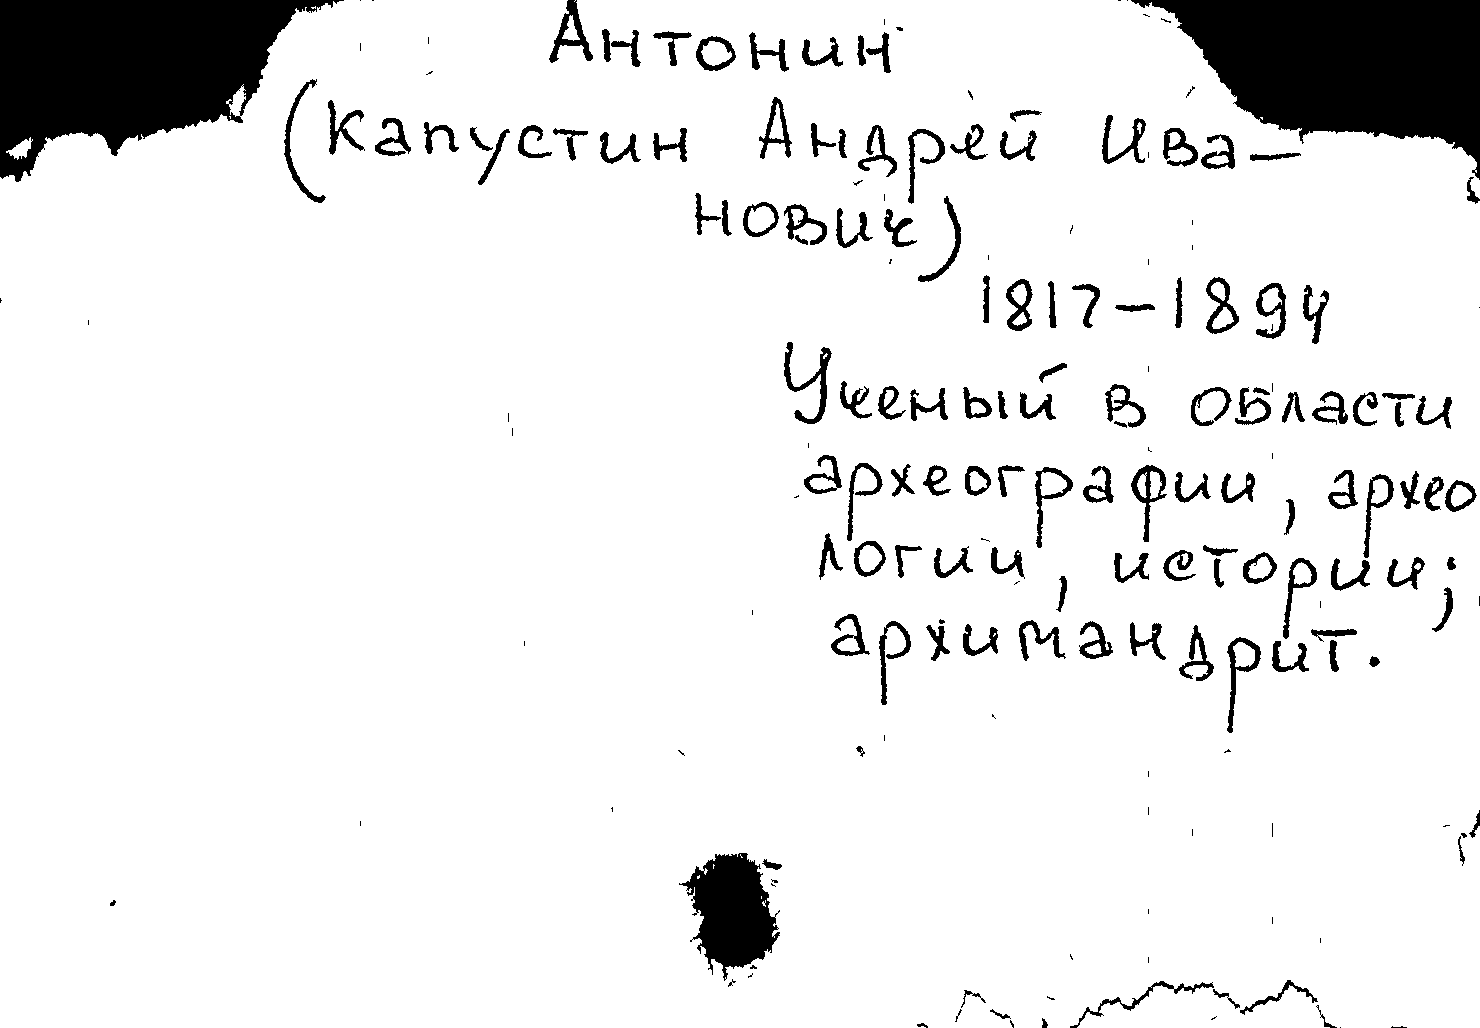 Антонин
(Капустин Андрей Ива-
нович)
1817-1894
Ученый в области
археографии, архео
логии, истории;
архимандрит.